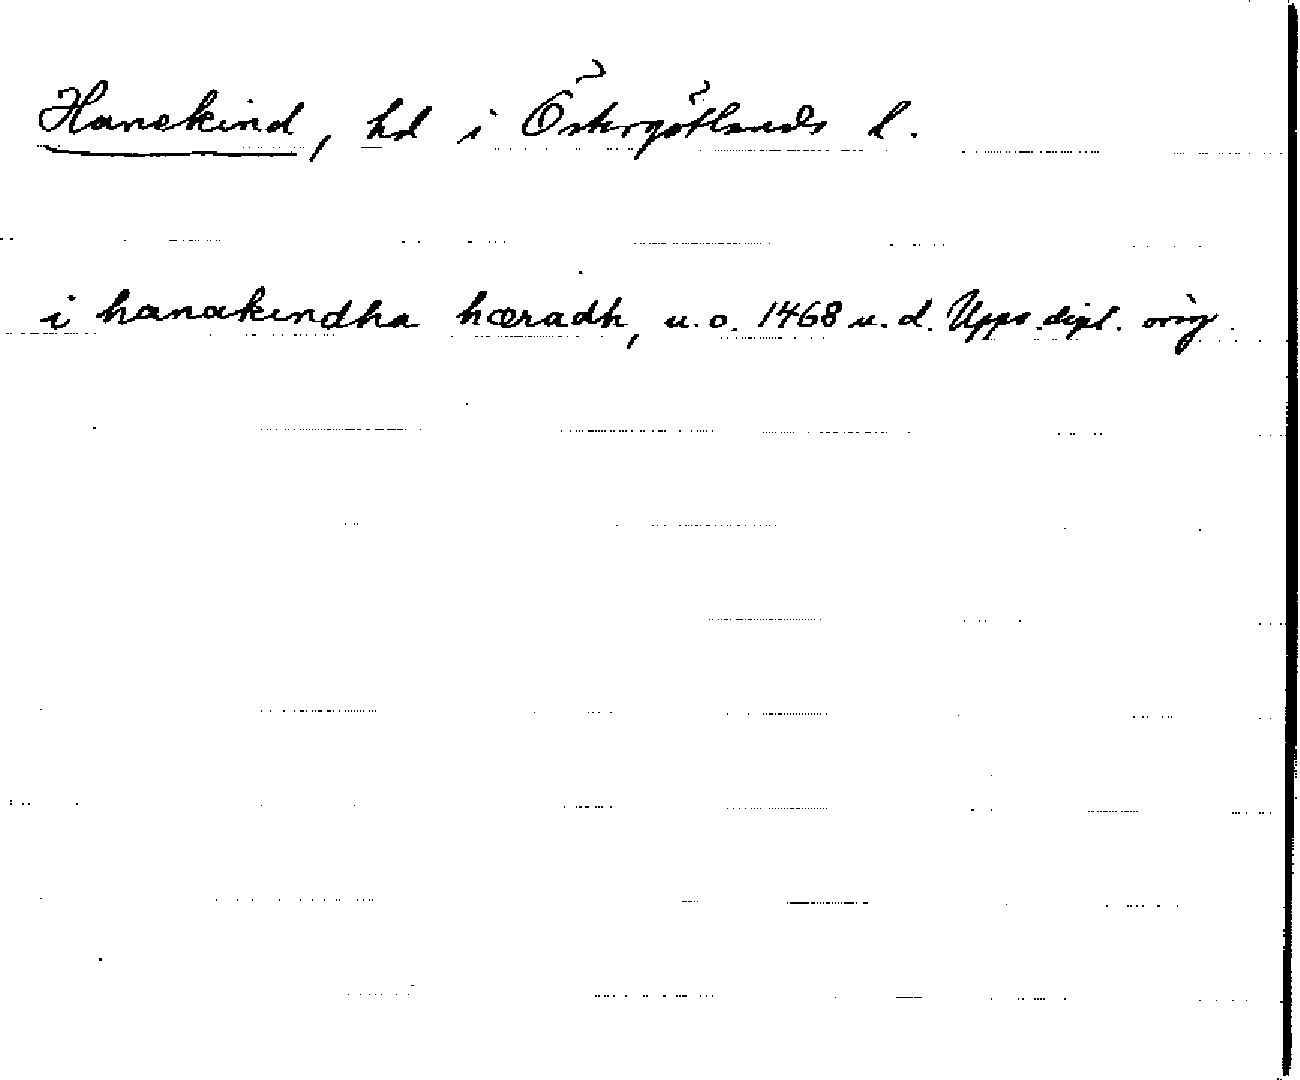 Hanekind, hd i Östergötlands l.
i hanakindha hæradh, u.o. 1468 u.d. Upps. dipl. orig.